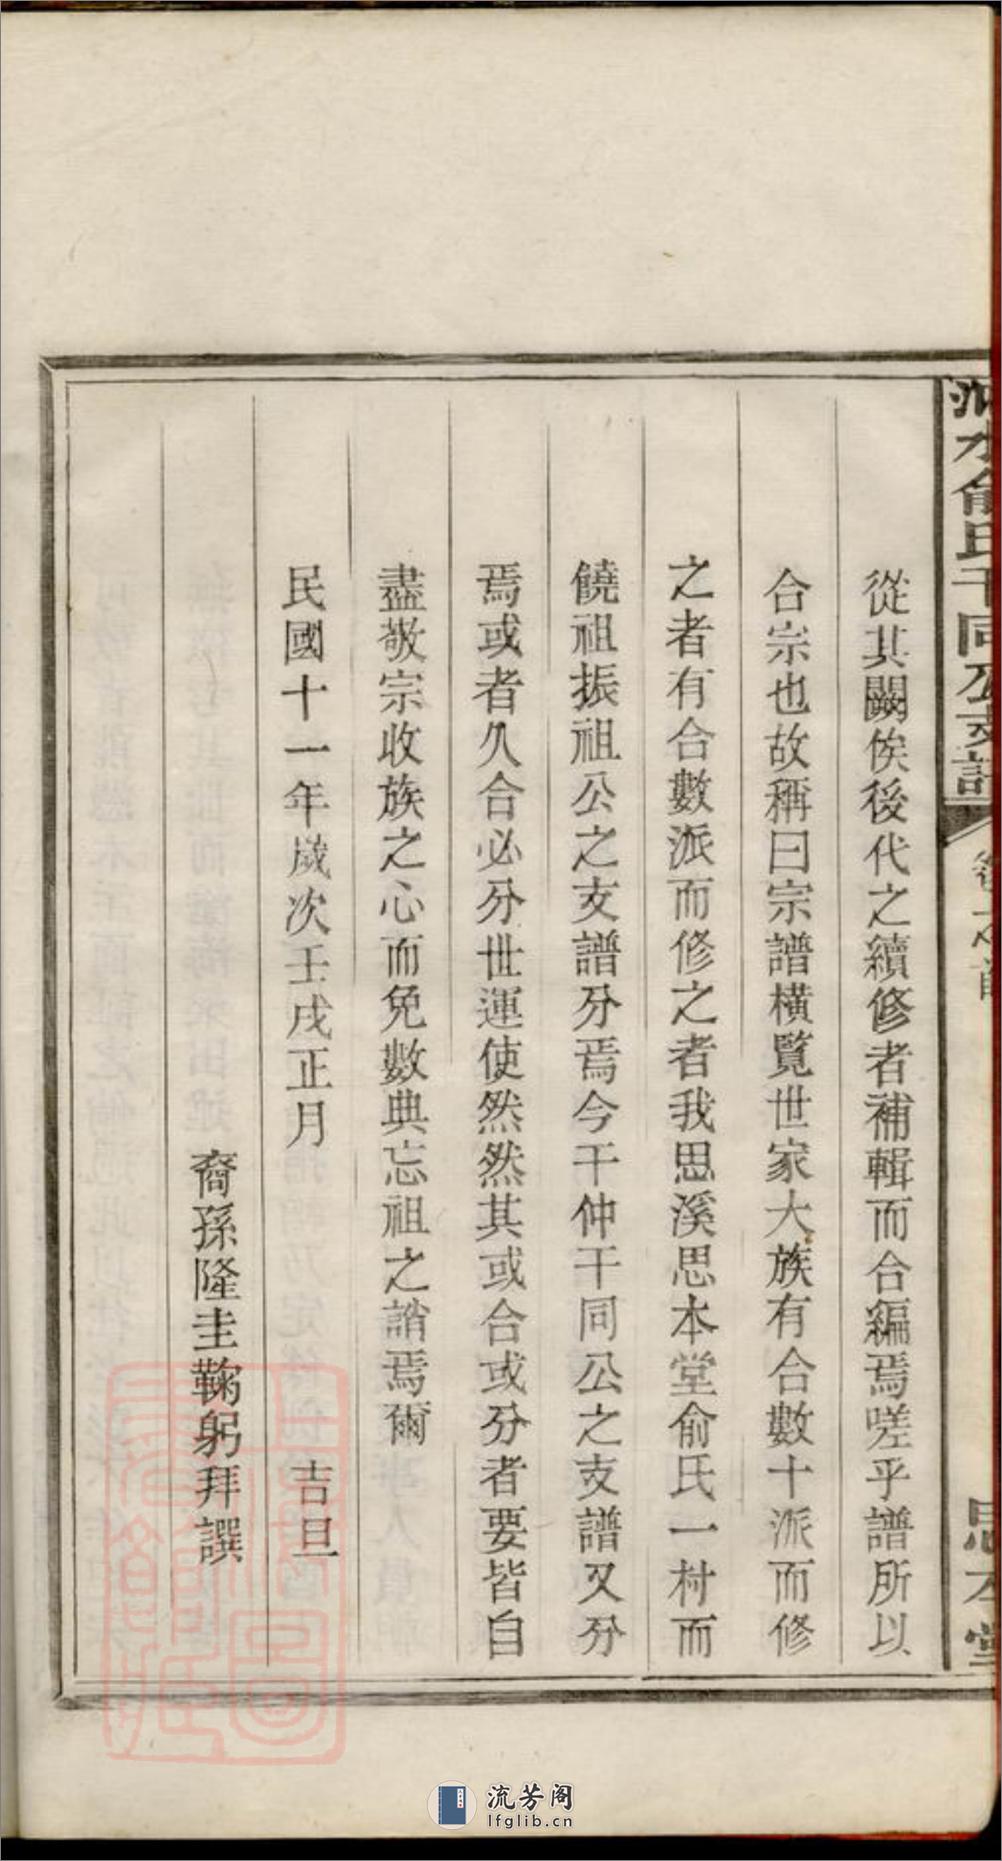 水俞氏干同公支譜
卷之首
思本堂
從其闕俟後代之續修者補輯而合編焉嗟乎譜所以
合宗也故稱曰宗譜橫覽世家大族有合數十派而修
之者有合數派而修之者我思溪思本堂俞氏一村而
饒祖振祖公之支譜分焉今干仲干同公之支譜又分
焉或者久合必分世運使然然其或合或分者要皆自
盡敬宗收族之心而免數典忘祖之誚焉爾
民國十一年歲次壬戌正月吉旦
裔孫隆圭鞠躬拜譔
流芳阁
lfglib.cn